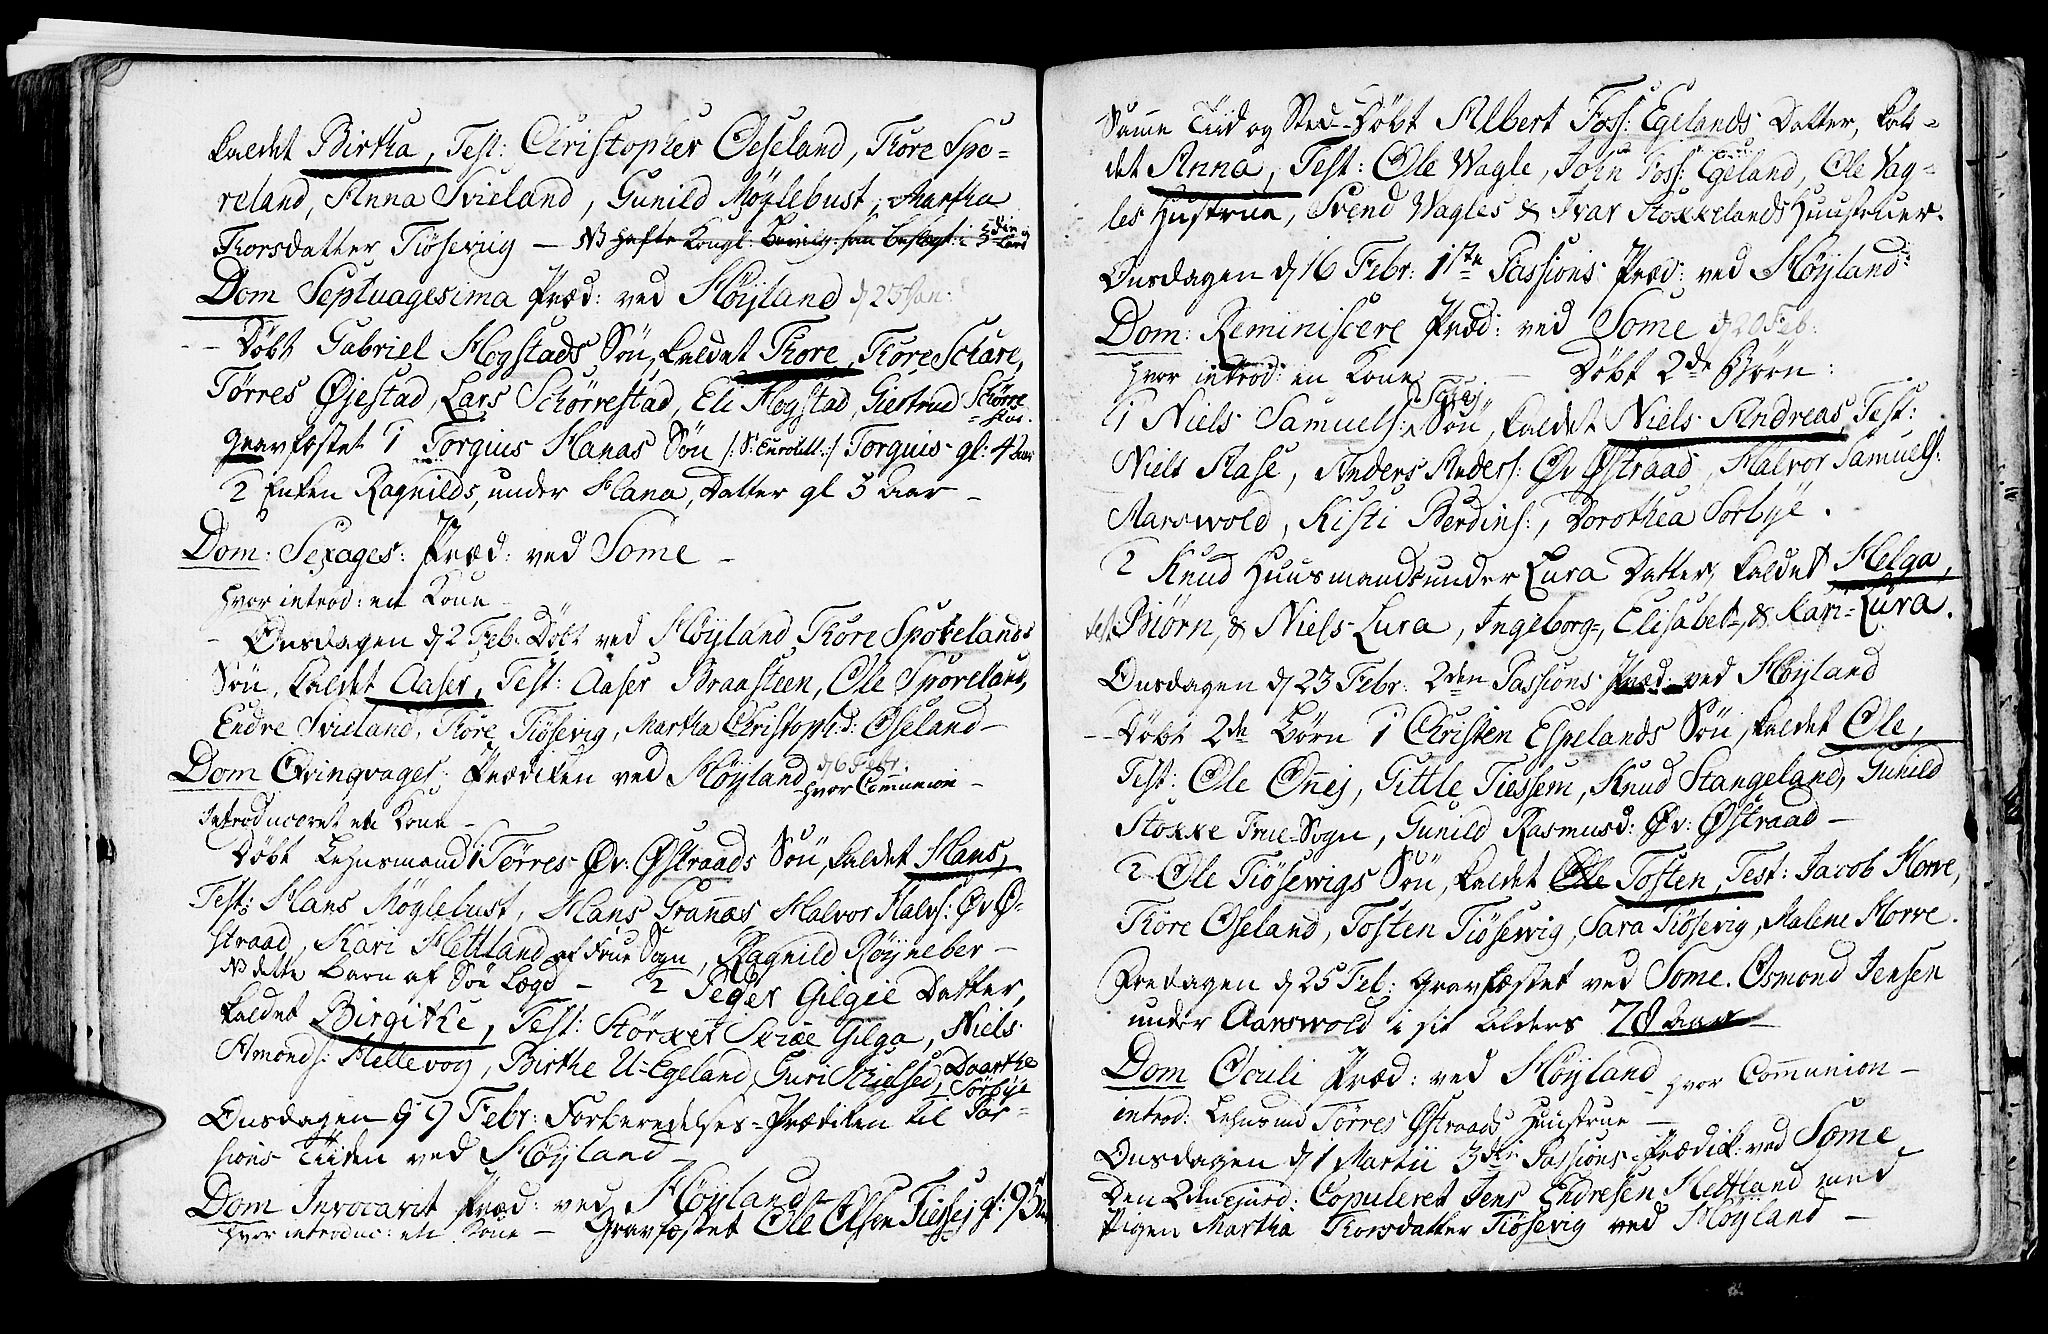 kaldet Birtha, Test: Christopher Oeseland, Thore Spo-
reland, Anna Svieland, Gunild Høylebust, Martha
Thorsdatter Tiösevig — NB hafte Kongl: Bevilg:
Dom Septuagesima Præd: ved Høyland d 23 Jan:
Døbt Gabriel Hogstads Søn, kaldet Thore, Thore Schare,
Tørres Øjestad, Lars Schørrestad, Eli Hogstad, Giertrud Schørre-
stad.
Gravfæstet 1 Torgius Hanas Søn Torguis gl: 4
2 Enken Ragnilds, under Hana, Datter gl 5 Aar —
Dom: Sexages: Præd: ved Some —
hvor introd: en Kone
— Onsdagen d 2 Feb: Døbt ved Høyland Thore Sporelands
Søn, kaldet Aaser, Test: Aaser Braasteen, Ole Sporeland,
Endre Svieland, Thore Tiösevig, Martha Christophd: Oseland —
Dom Qvinqvages: Prædiken ved Høyland d 6 Febr:
hvor Communion —
Introduceret en Kone —
Døbt Lehnsmand 1 Tørres Øv: Østraads Søn, kaldet Hans,
Test: Hans Høylebust, Hans Grannæs Halvor Halvs: Øv Ø-
straad, Kari Hettland af Frue Sogn, Ragnild Røyneber —
NB dette Barn af Søe Lægd — 2 Peder Gilgie Datter,
kaldet Birgithe, Test: Størker Gilga, Niels
Amonds: Hellevog, Birthe U-Egeland, Guri Daarthe
Sörbye
Onsdagen d 9 Febr: Forberedelses-Prædiken til Pas-
sions Tiiden ved Høyland
Dom Invocavit Præd: ved Høyland
hvor introduc: en Kone — Gravfæstet Ole Olsen Tiessej gl: 95
Samme Tiid og Sted Døbt Albert Foss: Egelands Datter, kal-
det Anna, Test: Ole Wagle, John Foss: Egeland, Ole Vag-
les Hustrue, Svend Wagles & Ivar Stokkelands Huustruer.
Onsdagen d 16 Febr: 1ste Passions Præd: ved Høyland:
Dom: Reminiscere Præd: ved Some d 20 Feb:
hvor introd: en Kone — Døbt 2de Børn:
1 Niels Samuels: Søn, kaldet Niels Andreas, Test:
Niels Aase, Anders Anders: Øv Østraad, Halvor Samuels:
Aarswold, Kisti Berdins:, Dorothea Sorbye.
2 Knud Huusmands under Lura Datter, kaldet Helga,
test: Biørn, & Niels Lura, Ingeborg-, Elisabet-, & Kari-Lura.
Onsdagen d 23 Febr: 2den Passions Præd: ved Høyland
— Døbt 2de Børn 1 Christen Espelands Søn, kaldet Ole,
Test: Ole Ønej, Tittle Tiessem, Knud Stangeland, Gunild
Stokke Frue-Sogn, Gunild Rasmusd: Øv: Østraad —
2 Ole Tiösewigs Søn, kaldet Ole Tosten, Test: Jacob Horve,
Thore Oseland, Tosten Tiösewig, Sara Tiösevig, Malene Horve.
Fredagen d 25 Feb: Gravfæstet ved Some. Osmond Jensen
under Aarswold i sit Alders 78 Aar —
Dom Oculi Præd: ved Høyland hvor Communion —
introd: Lehnsmd Tørres Østraads Huustrue —
Onsdagen d 1 Martii 3die Passions-Prædik: ved Some
Den 2den ejusd: Copuleret Jens Endresen Hettland med
Pigen Martha Thorsdatter Tiösevig ved Høyland —